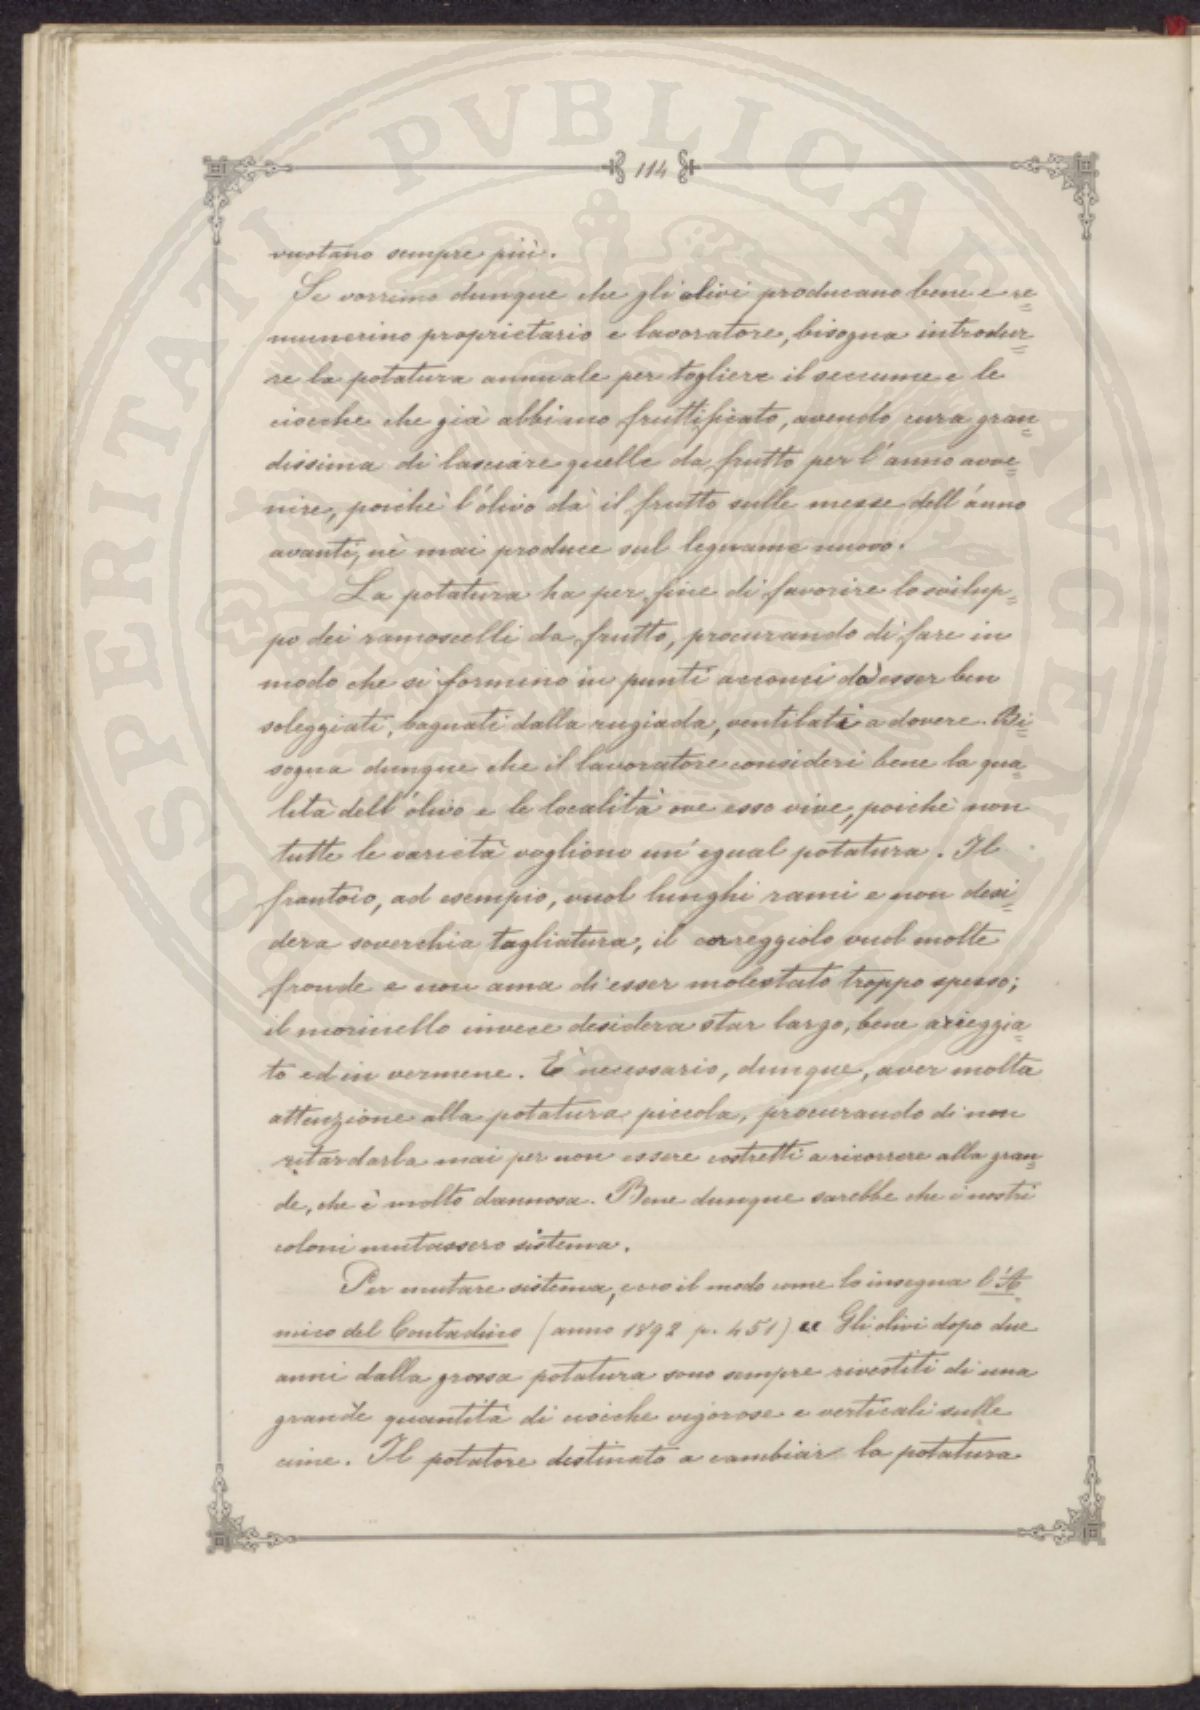 114
vuotano sempre più.
Se vorremo dunque che gli olivi producano bene e re=
munerino proprietario e lavoratore, bisogna introdur=
re la potatura annuale per togliere il seccume e le
ciocche che già abbiano fruttificato, avendo cura gran=
dissima di lasciare quelle da frutto per l'anno avve=
nire, poichè l'olivo dà il frutto sulle messe dell'anno
avanti, nè mai produce sul legname nuovo.
La potatura ha per fine di favorire lo svilup=
po dei ramoscelli da frutto, procurando di fare in
modo che si formino in punti acconci da esser ben
soleggiati, bagnati dalla rugiada, ventilati a dovere. Bi=
sogna dunque che il lavoratore consideri bene la qua=
lità dell'olivo e le località ove esso vive, poichè non
tutte le varietà vogliono un'egual potatura. Il
frantoio, ad esempio, vuol lunghi rami e non desi=
dera soverchia tagliatura, il correggiolo vuol molte
fronde e non ama di esser molestato troppo spesso;
il morinello invece desidera star largo, bene arieggia=
to ed in vermene. È necessario, dunque, aver molta
attenzione alla potatura piccola, procurando di non
ritardarla mai per non essere costretti a ricorrere alla gran=
de, che è molto dannosa. Bene dunque sarebbe che i nostri
coloni mutassero sistema.
Per mutare sistema, ecco il modo come lo insegna l'A=
mico del Contadino (anno 1892 p. 451) « Gli olivi dopo due
anni dalla grossa potatura sono sempre rivestiti di una
grande quantità di cioiche vigorose e verticali sulle
cime. Il potatore destinato a cambiar la potatura
SPERITATI PVBLICAE AVGENDAE